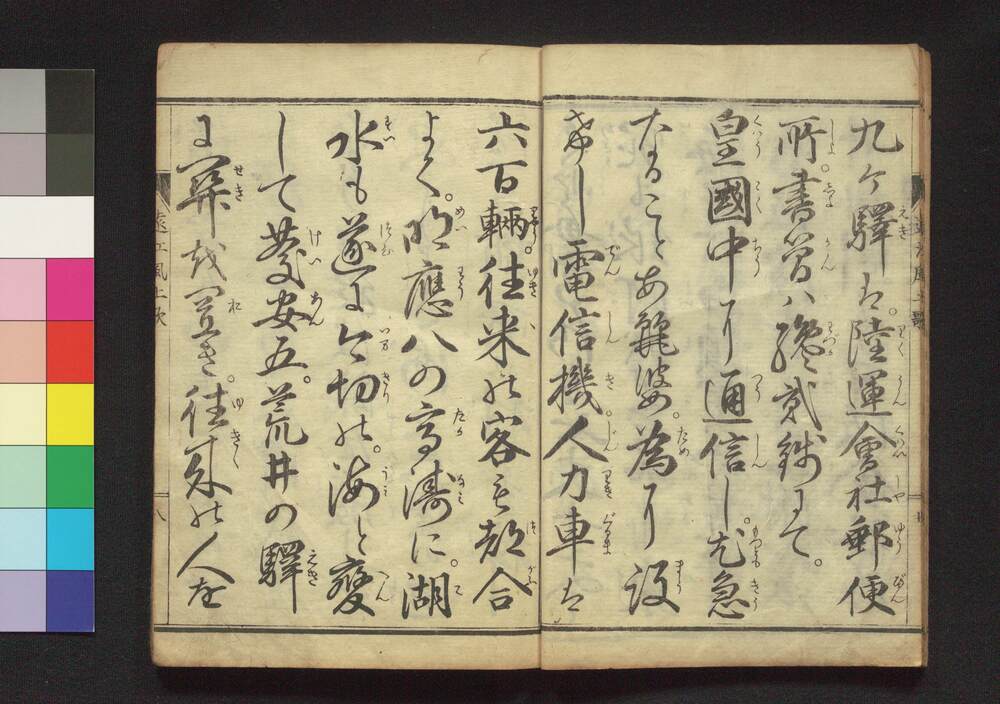 九ケ驛は。陸運會社郵便
所。書翰ハ纔貳錢にて。
皇國中に通信し。尤急
なることあ
為に設
けし電信機。人力車は
六百輛。往来の客も都合
よく。明應八の高濤に。湖
水も遂に今切の。海と變
して慶安五。荒井の驛
に関を置き。往来の人を
遠江風土歌
八